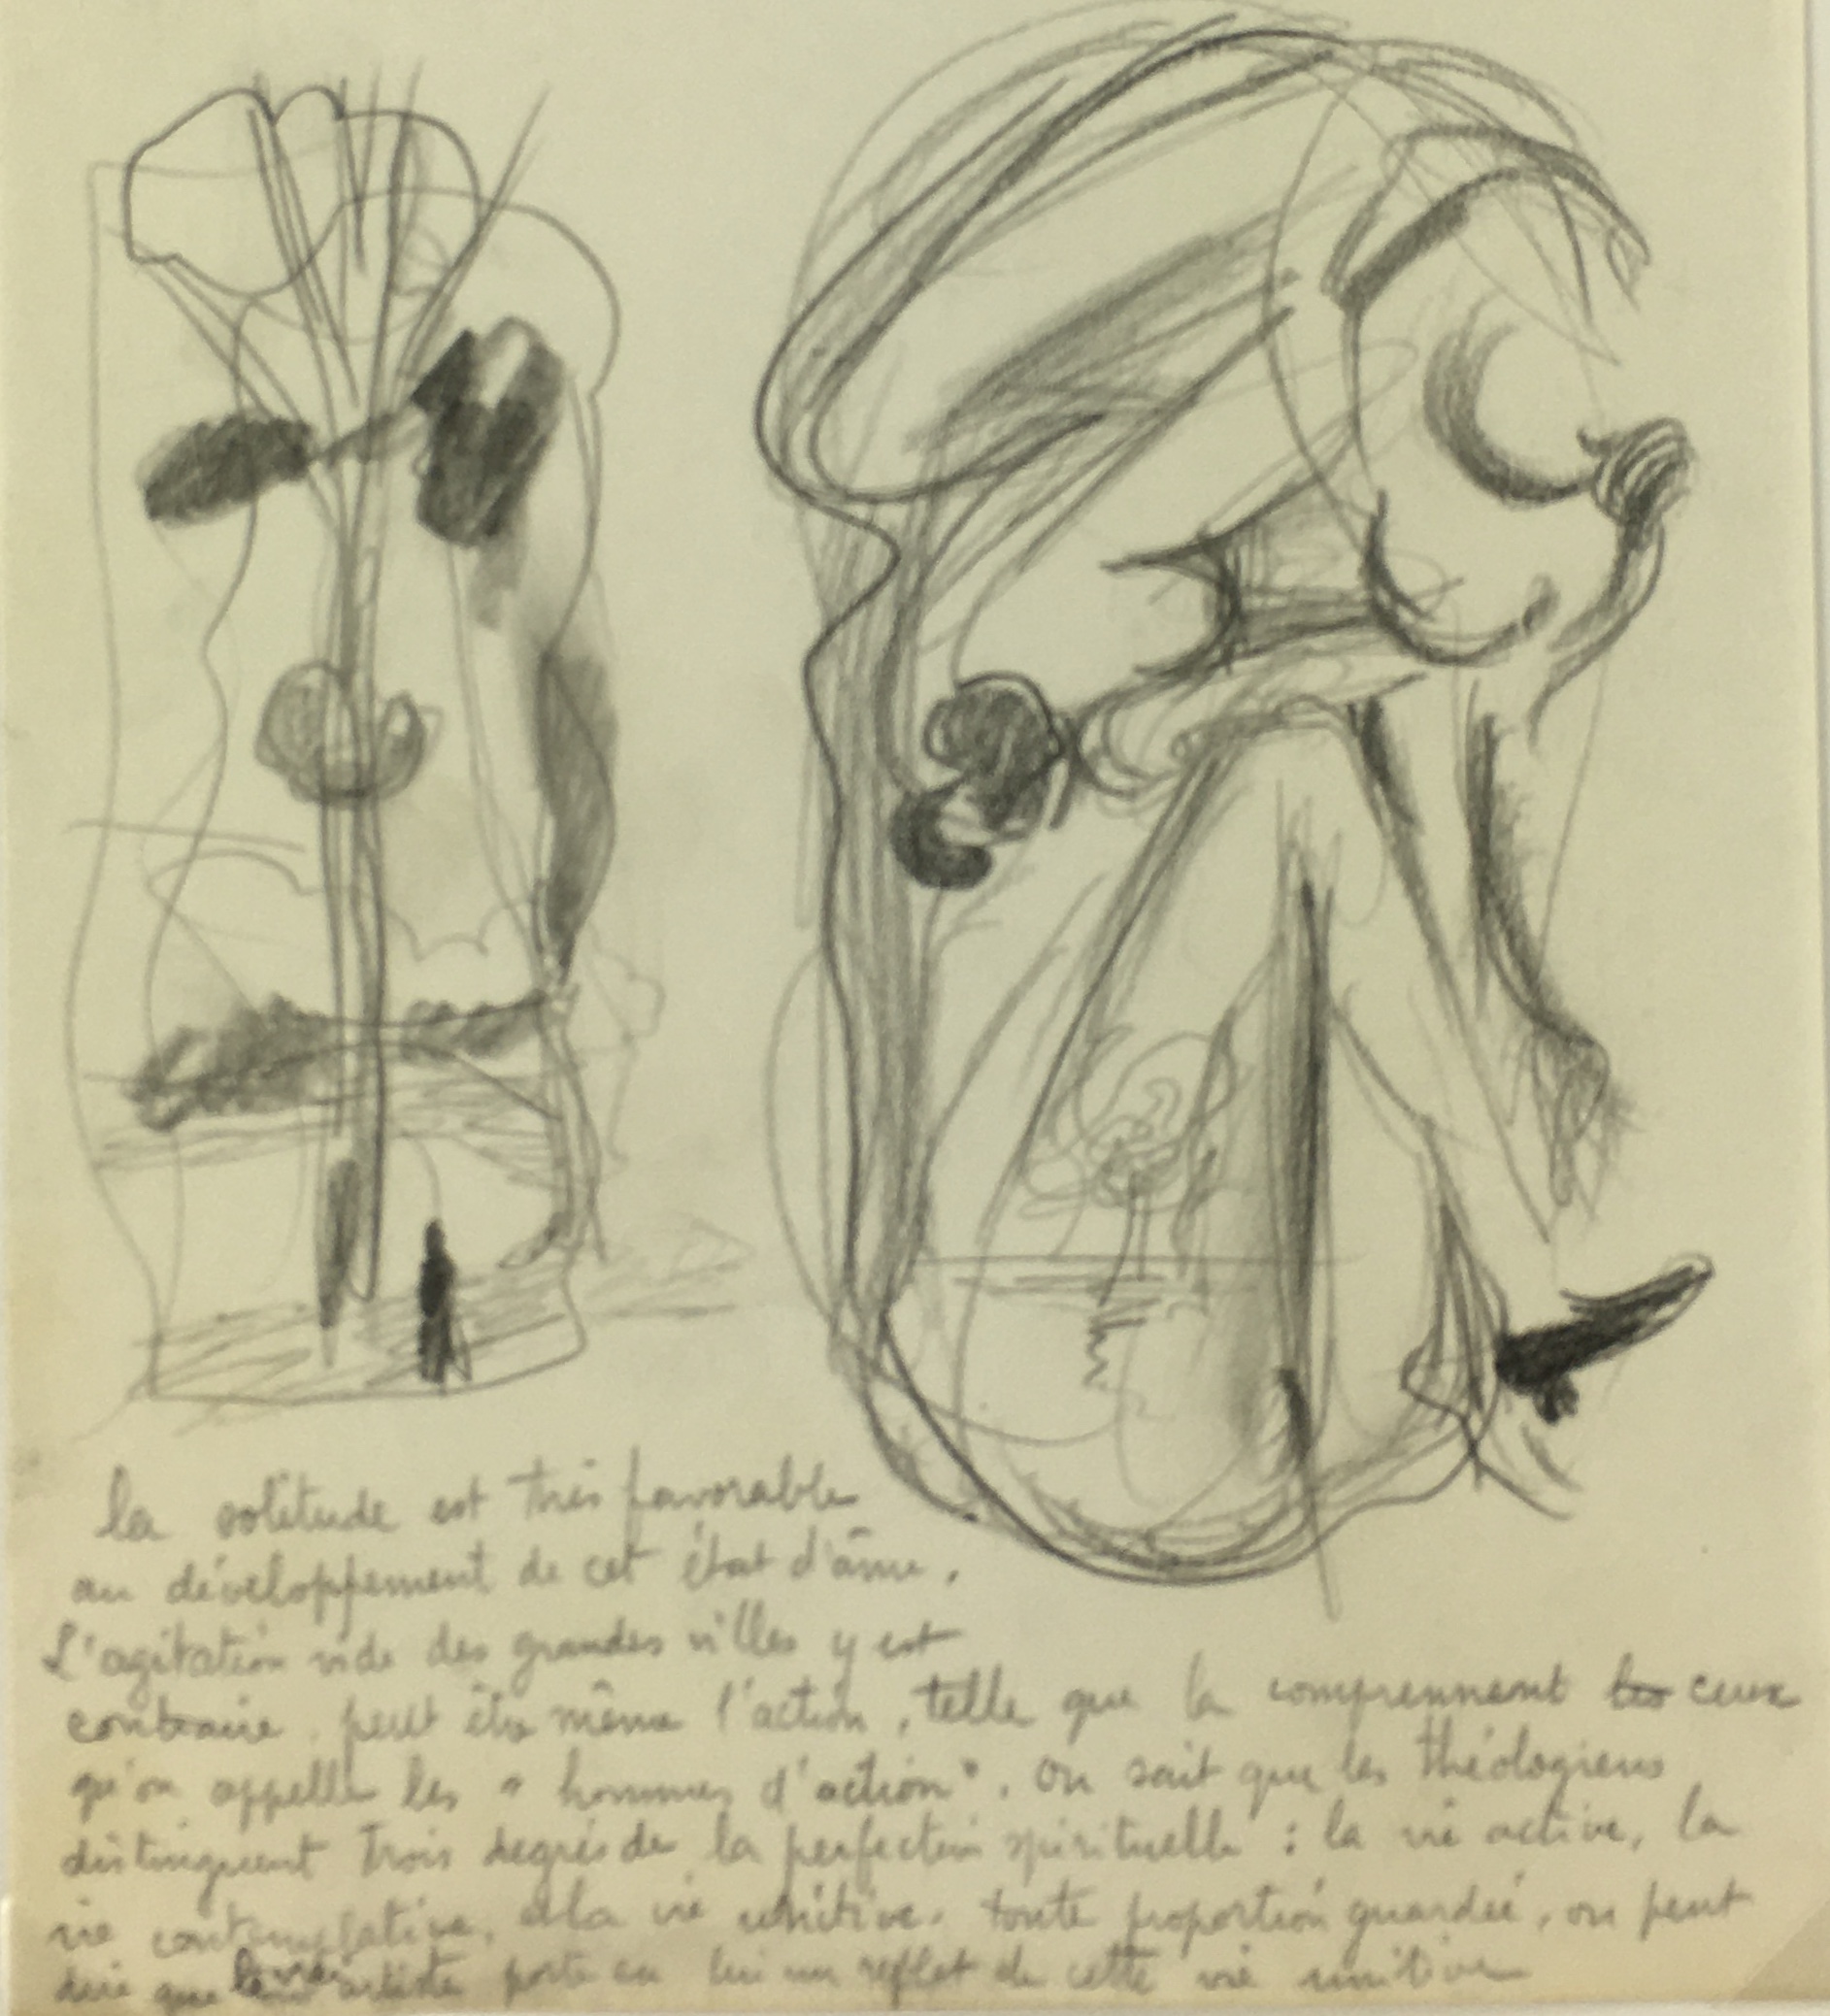 la solitude est très favorable
au développement de cet état d'âme.
L'agitation vide des grandes villes y est
contraire, peut être même l'action, telle que la comprennent les ceux
qu'on appelle les "hommes d'action". On sait que les théologiens
distinguent trois degrés de la perfection spirituelle : la vie active, la
vie contemplative, et la vie unitive. toute proportion guardée, on peut
dire que le vrai artiste porte en lui un reflet de cette vie unitive